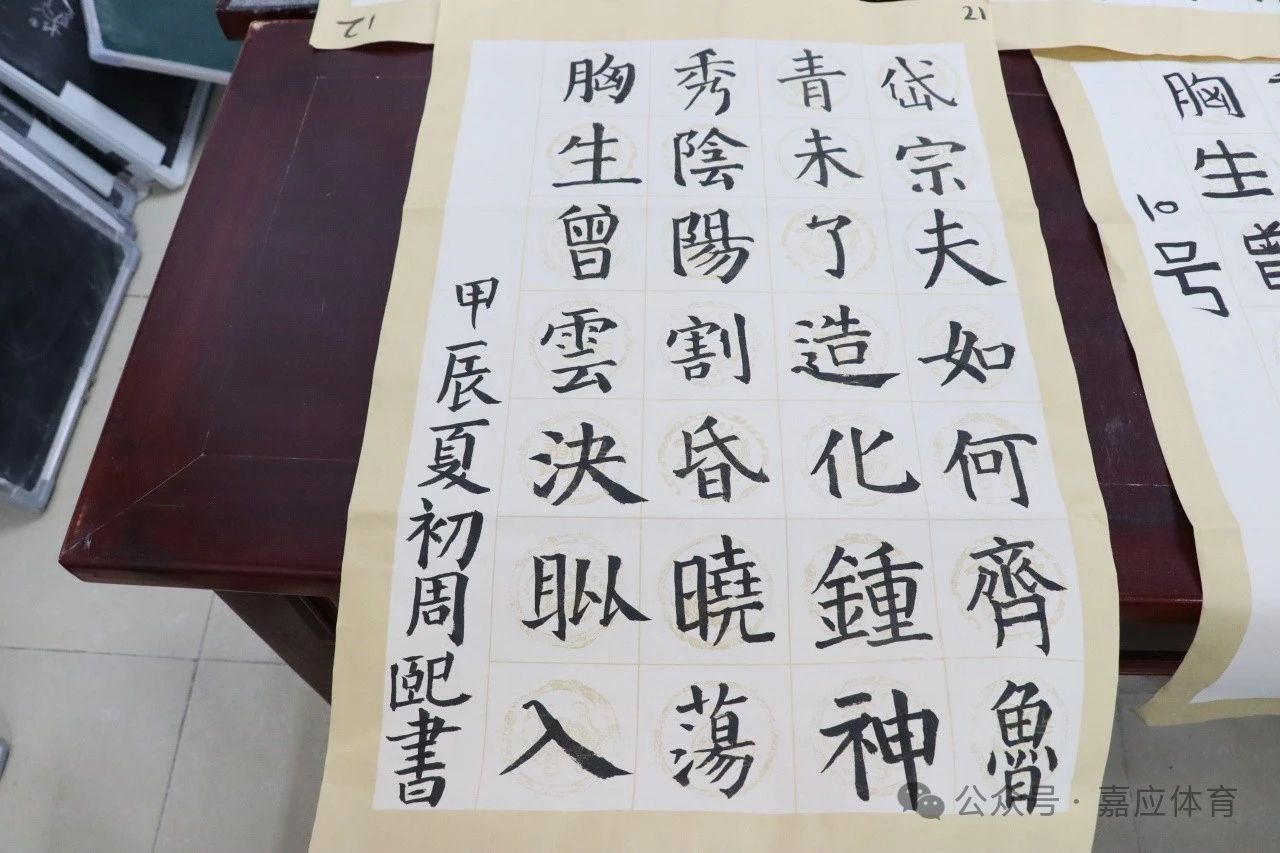 21
岱宗夫如何齊魯
青未了造化鍾神
秀陰陽割昏曉蕩
胸生曾雲決眦入
甲辰夏初周熙書
12
胸生曾
10号
公众号·嘉应体育